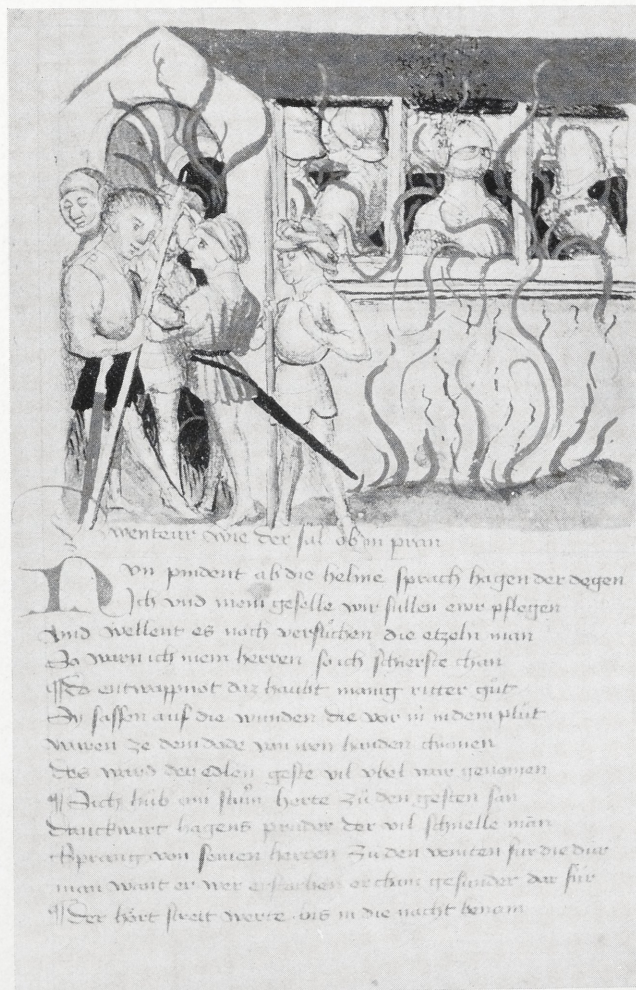 wenteur wie der sal ob in pran
Nvn pindent ab die helme sprach hagen der degen
Ich vnd mein geselle wir süllen ewr pflegen
Vnd wellent es noch versůchen die etzeln man
So warn ich mein herren so ich schierste chan
¶ Do entwappnot daz haubt manig ritter gůt
Sy sassen auf die wunden die vor in in dem plůt
waren ze dem dode von iren handen chomen
Des ward der edlen geste vil vbel war genomen
¶ Sich hůb ain sturm herte zů den gesten san
Danckwart hagens průder der vil schnelle man
Sprang von seinen herren zu den veinten für die dür
man want er wer erstorben er chom gesunder dar für
¶ Der hört streit werte bis in die nacht benam